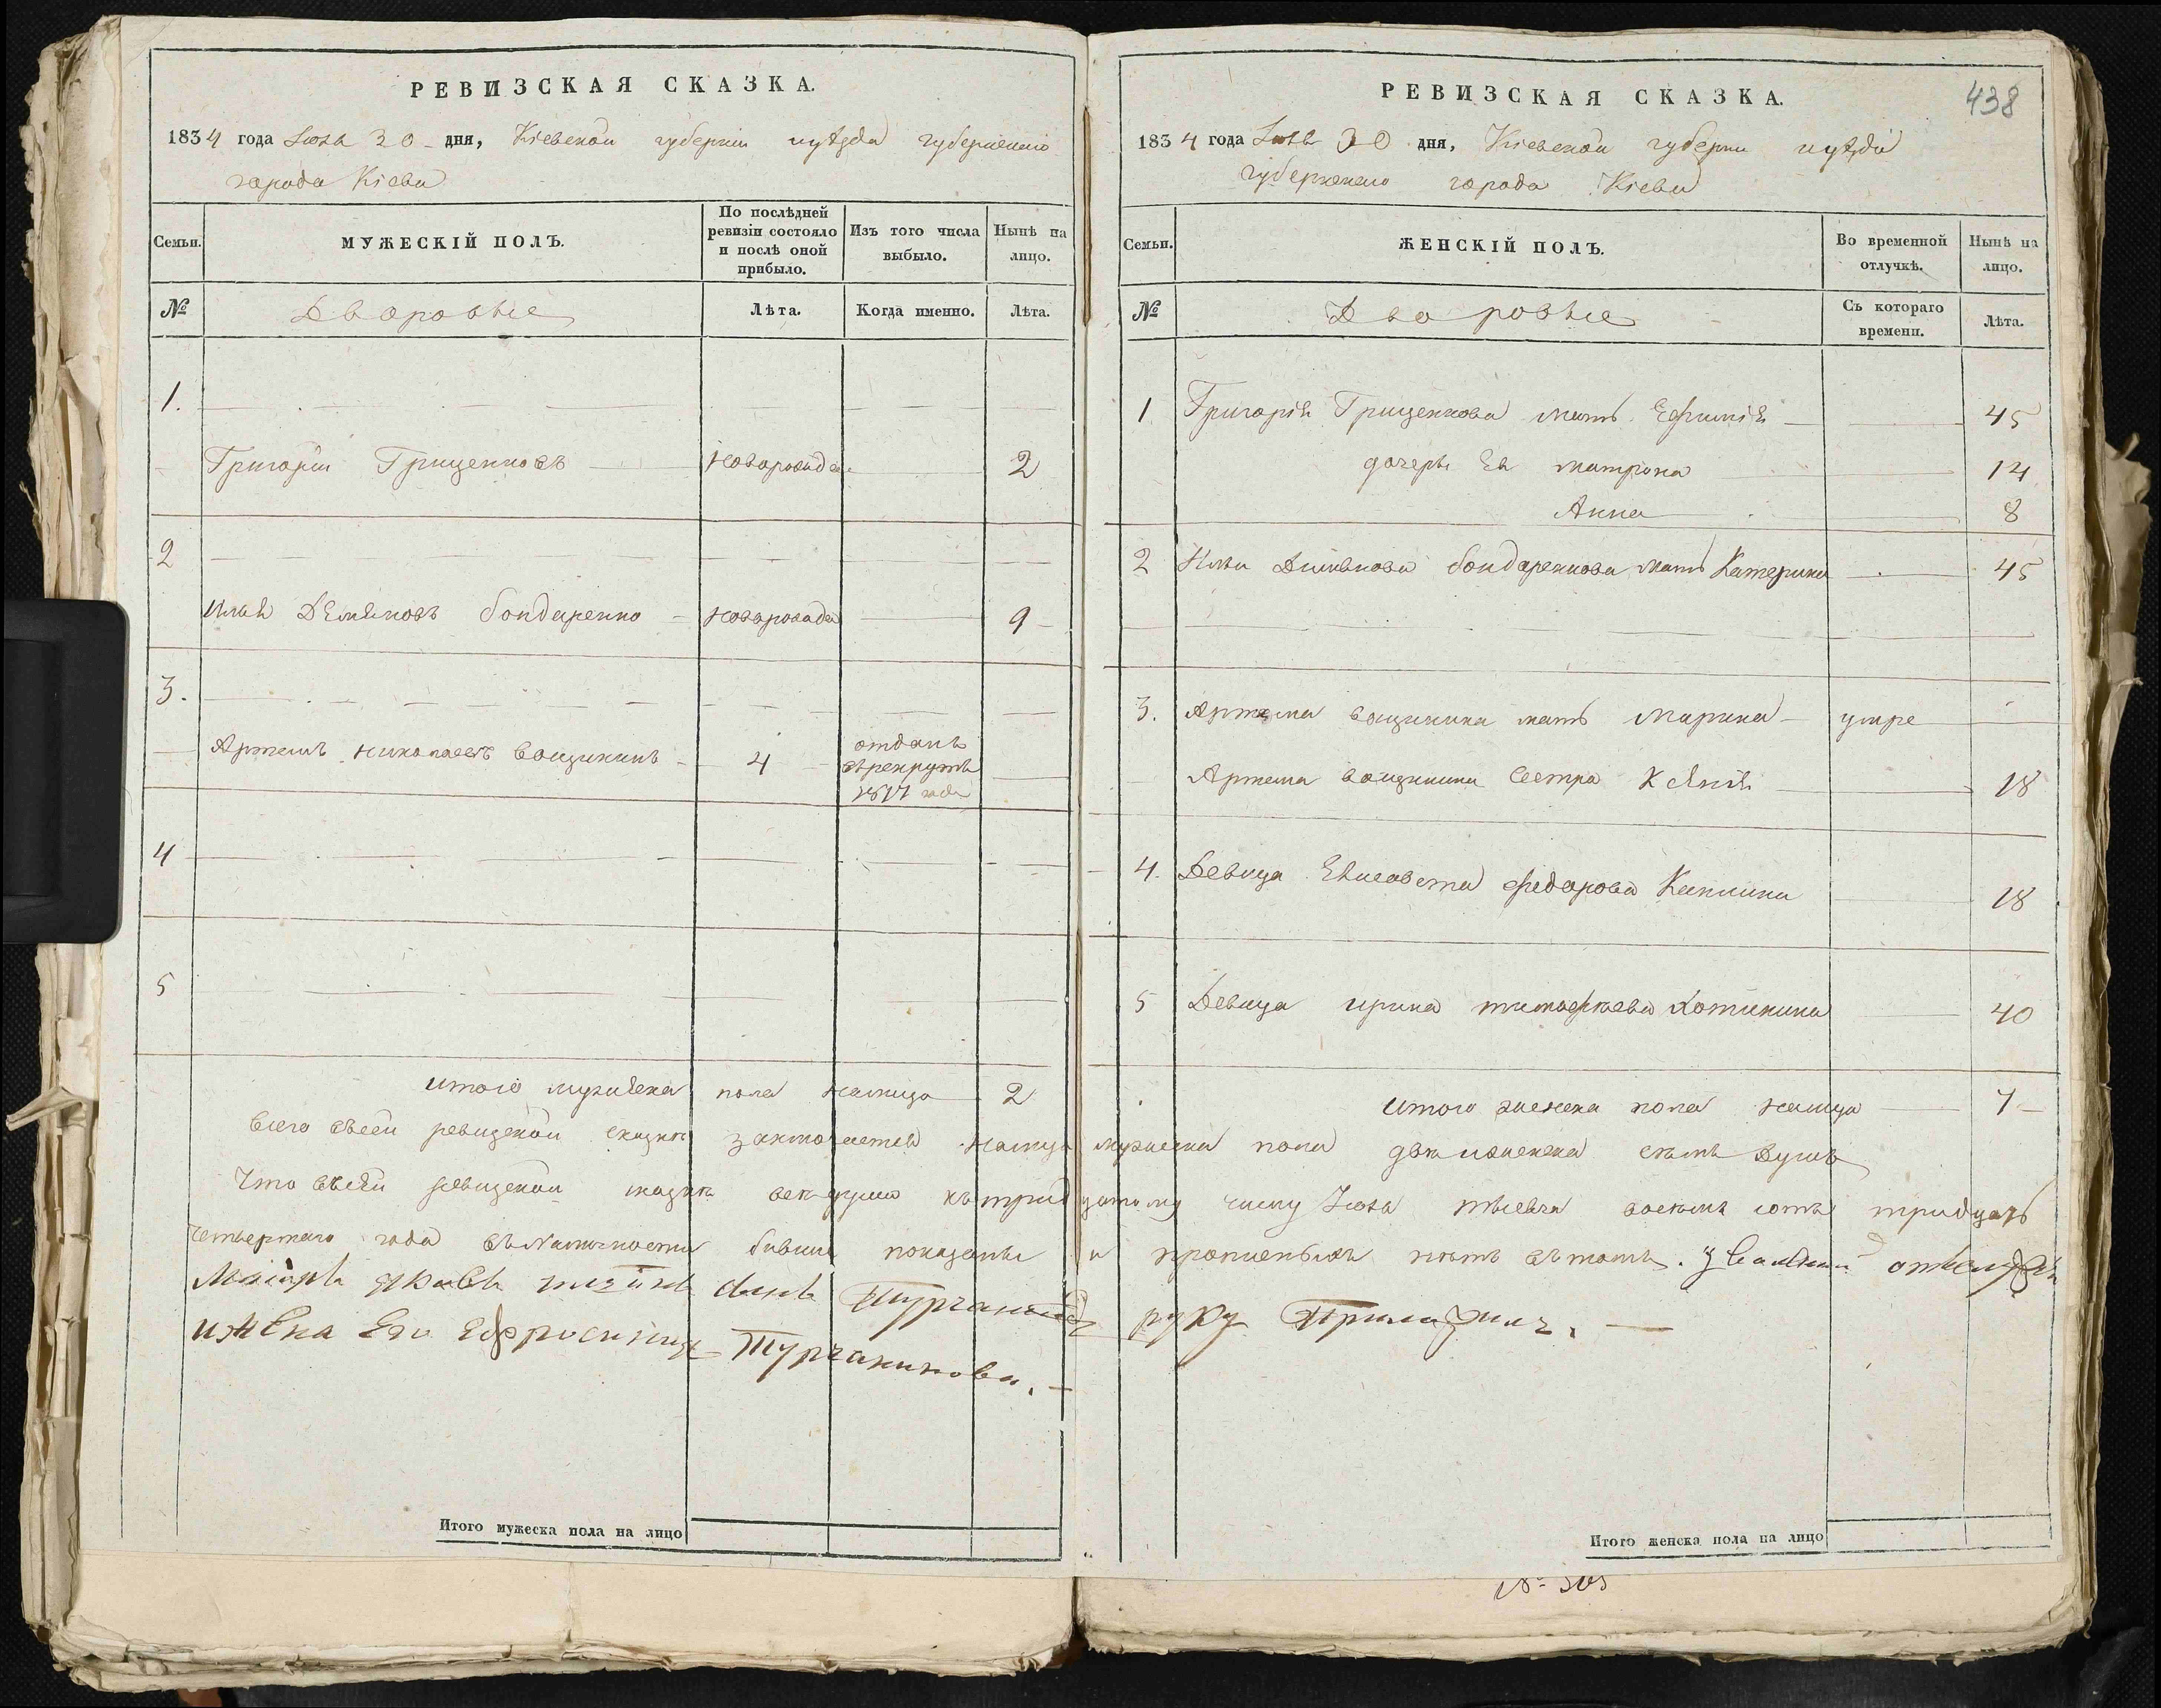 РЕВИЗСКАЯ СКАЗКА.
1834 года Июня 30 дня, Кіевской губерніи иуѣзда губернскаго
города Кіева
Семьи.
МУЖЕСКІЙ ПОЛЪ.
По послѣдней ревизіи состояло и послѣ оной прибыло.
Изъ того числа выбыло.
Нынѣ на лицо.
№
Дворовые
Лѣта.
Когда именно.
Лѣта.
1.
Григорій Грищенковъ новорожде 2
2
Илья Демяновъ бондаренко новорожде 9
3.
Артемъ Николаевъ Вощининъ 4 отданъ
врекруты
года
4
5
итого мужеска пола налицо 2
РЕВИЗСКАЯ СКАЗКА.
438
1834 года Июня 30 дня, Кіевской губерни иуѣзда
губернскаго города Кіева
Семьи.
ЖЕНСКІЙ ПОЛЪ.
Во временной отлучкѣ.
Нынѣ на лицо.
№
Дворовые
Съ котораго времени.
Лѣта.
1 Григорія Грищенкова мать Ефимія 45
дочеры Ея матрона 14
Анна 8
2 Ильи Демянова бондаренкова мать Катерина 45
3. Артема вощинина мать Марина умре
Артема вощинина сестра Ксения 18
4. Девица Елисавета федорова 18
5 Девица ирина тимофеева 40
итого женска пола налицо 7
Всего всеей ревизской сказки заключается налицо мужеска пола два иженска семь душъ
Что всеей ревизской сказки все души ктридцатому числу Июня тысеча восемь сотъ тридцать
Четвертаго года вналичности бывши показаны и прописныхъ нетъ втомъ.
Маіоръ яковъ сынъ Турчаниновъ руку Приложилъ.
ижена Его Ефросинія Турчанинова.
Итого мужеска пола на лицо
Итого женска пола на лицо